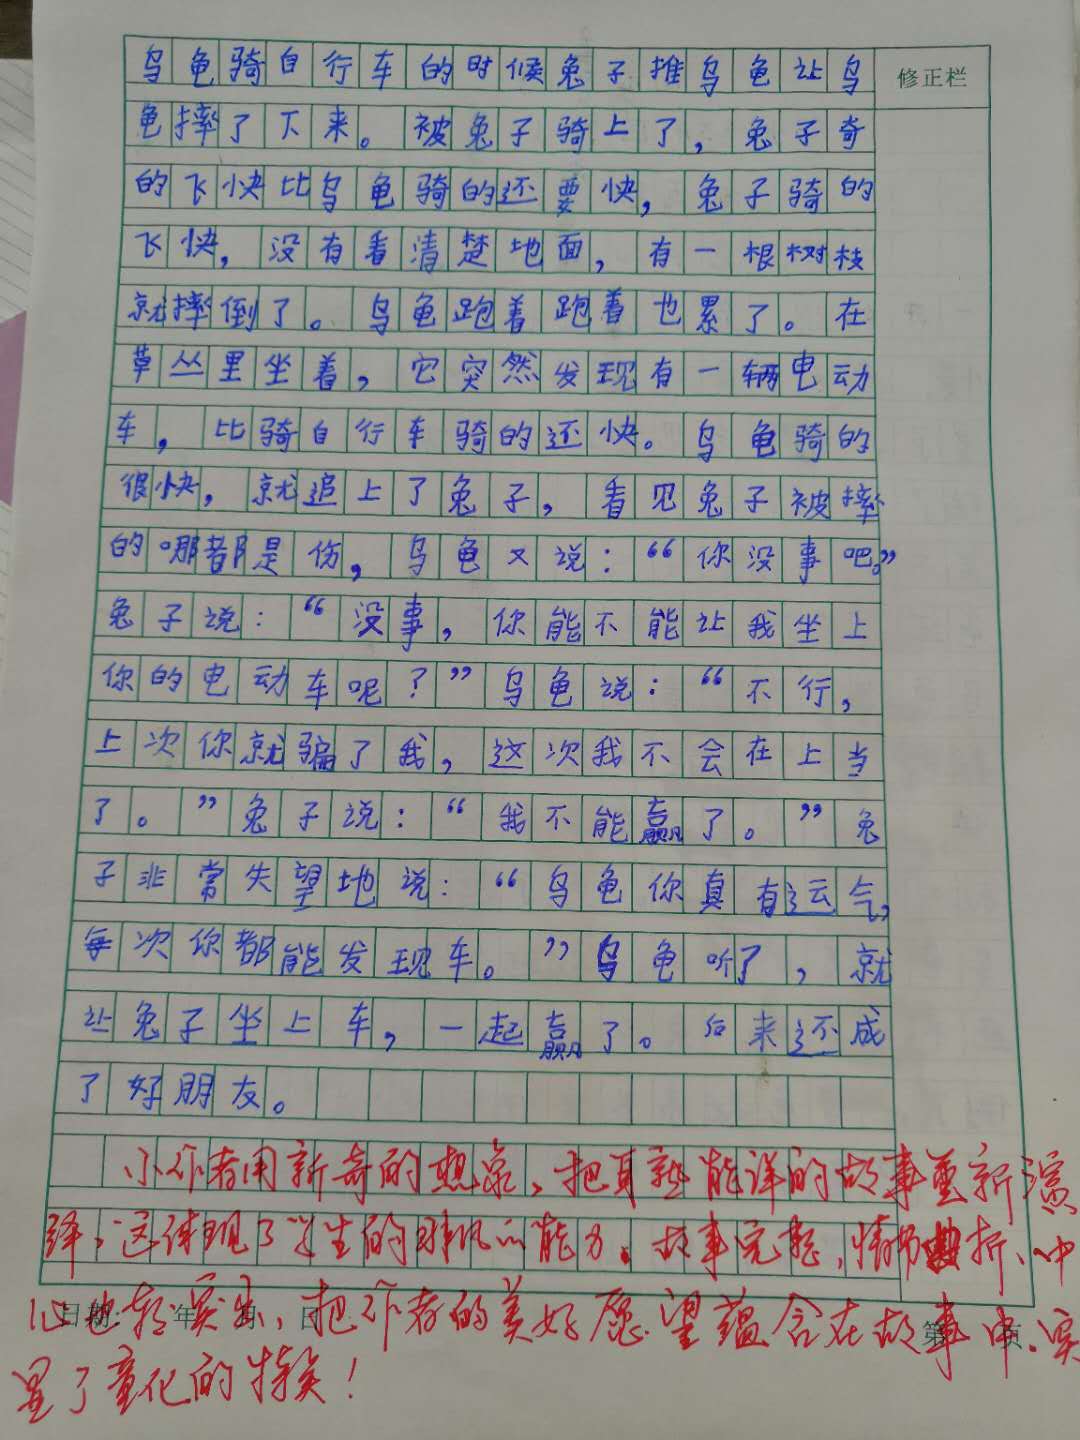 乌龟骑自行车的时候兔子推乌龟让乌
修正栏
龟摔了下来。被兔子骑上了，兔子奇
的飞快比乌龟骑的还要快，兔子骑的
飞快，没有看清楚地面，有一根树枝
就摔倒了。乌龟跑着跑着也累了。在
草丛里坐着，它突然发现有一辆电动
车，比骑自行车骑的还快。乌龟骑的
很快，就追上了兔子，看见兔子被摔
的哪都是伤，乌龟又说：“你没事吧。”
兔子说：“没事，你能不能让我坐上
你的电动车呢？”乌龟说：“不行，
上次你就骗了我，这次我不会在上当
了。”兔子说：“我不能赢了。”兔
子非常失望地说：“乌龟你真有运气，
每次你都能发现车。”乌龟听了，就
让兔子坐上车，一起赢了。后来还成
了好朋友。
小作者用新奇的想象，把耳熟能详的故事重新演
绎，这体现了学生的能力。故事完整，情节曲折、中
心也较突出，把作者的美好愿望蕴含在故事中，
了童化的特点！
日期： 年 月 日
第 页